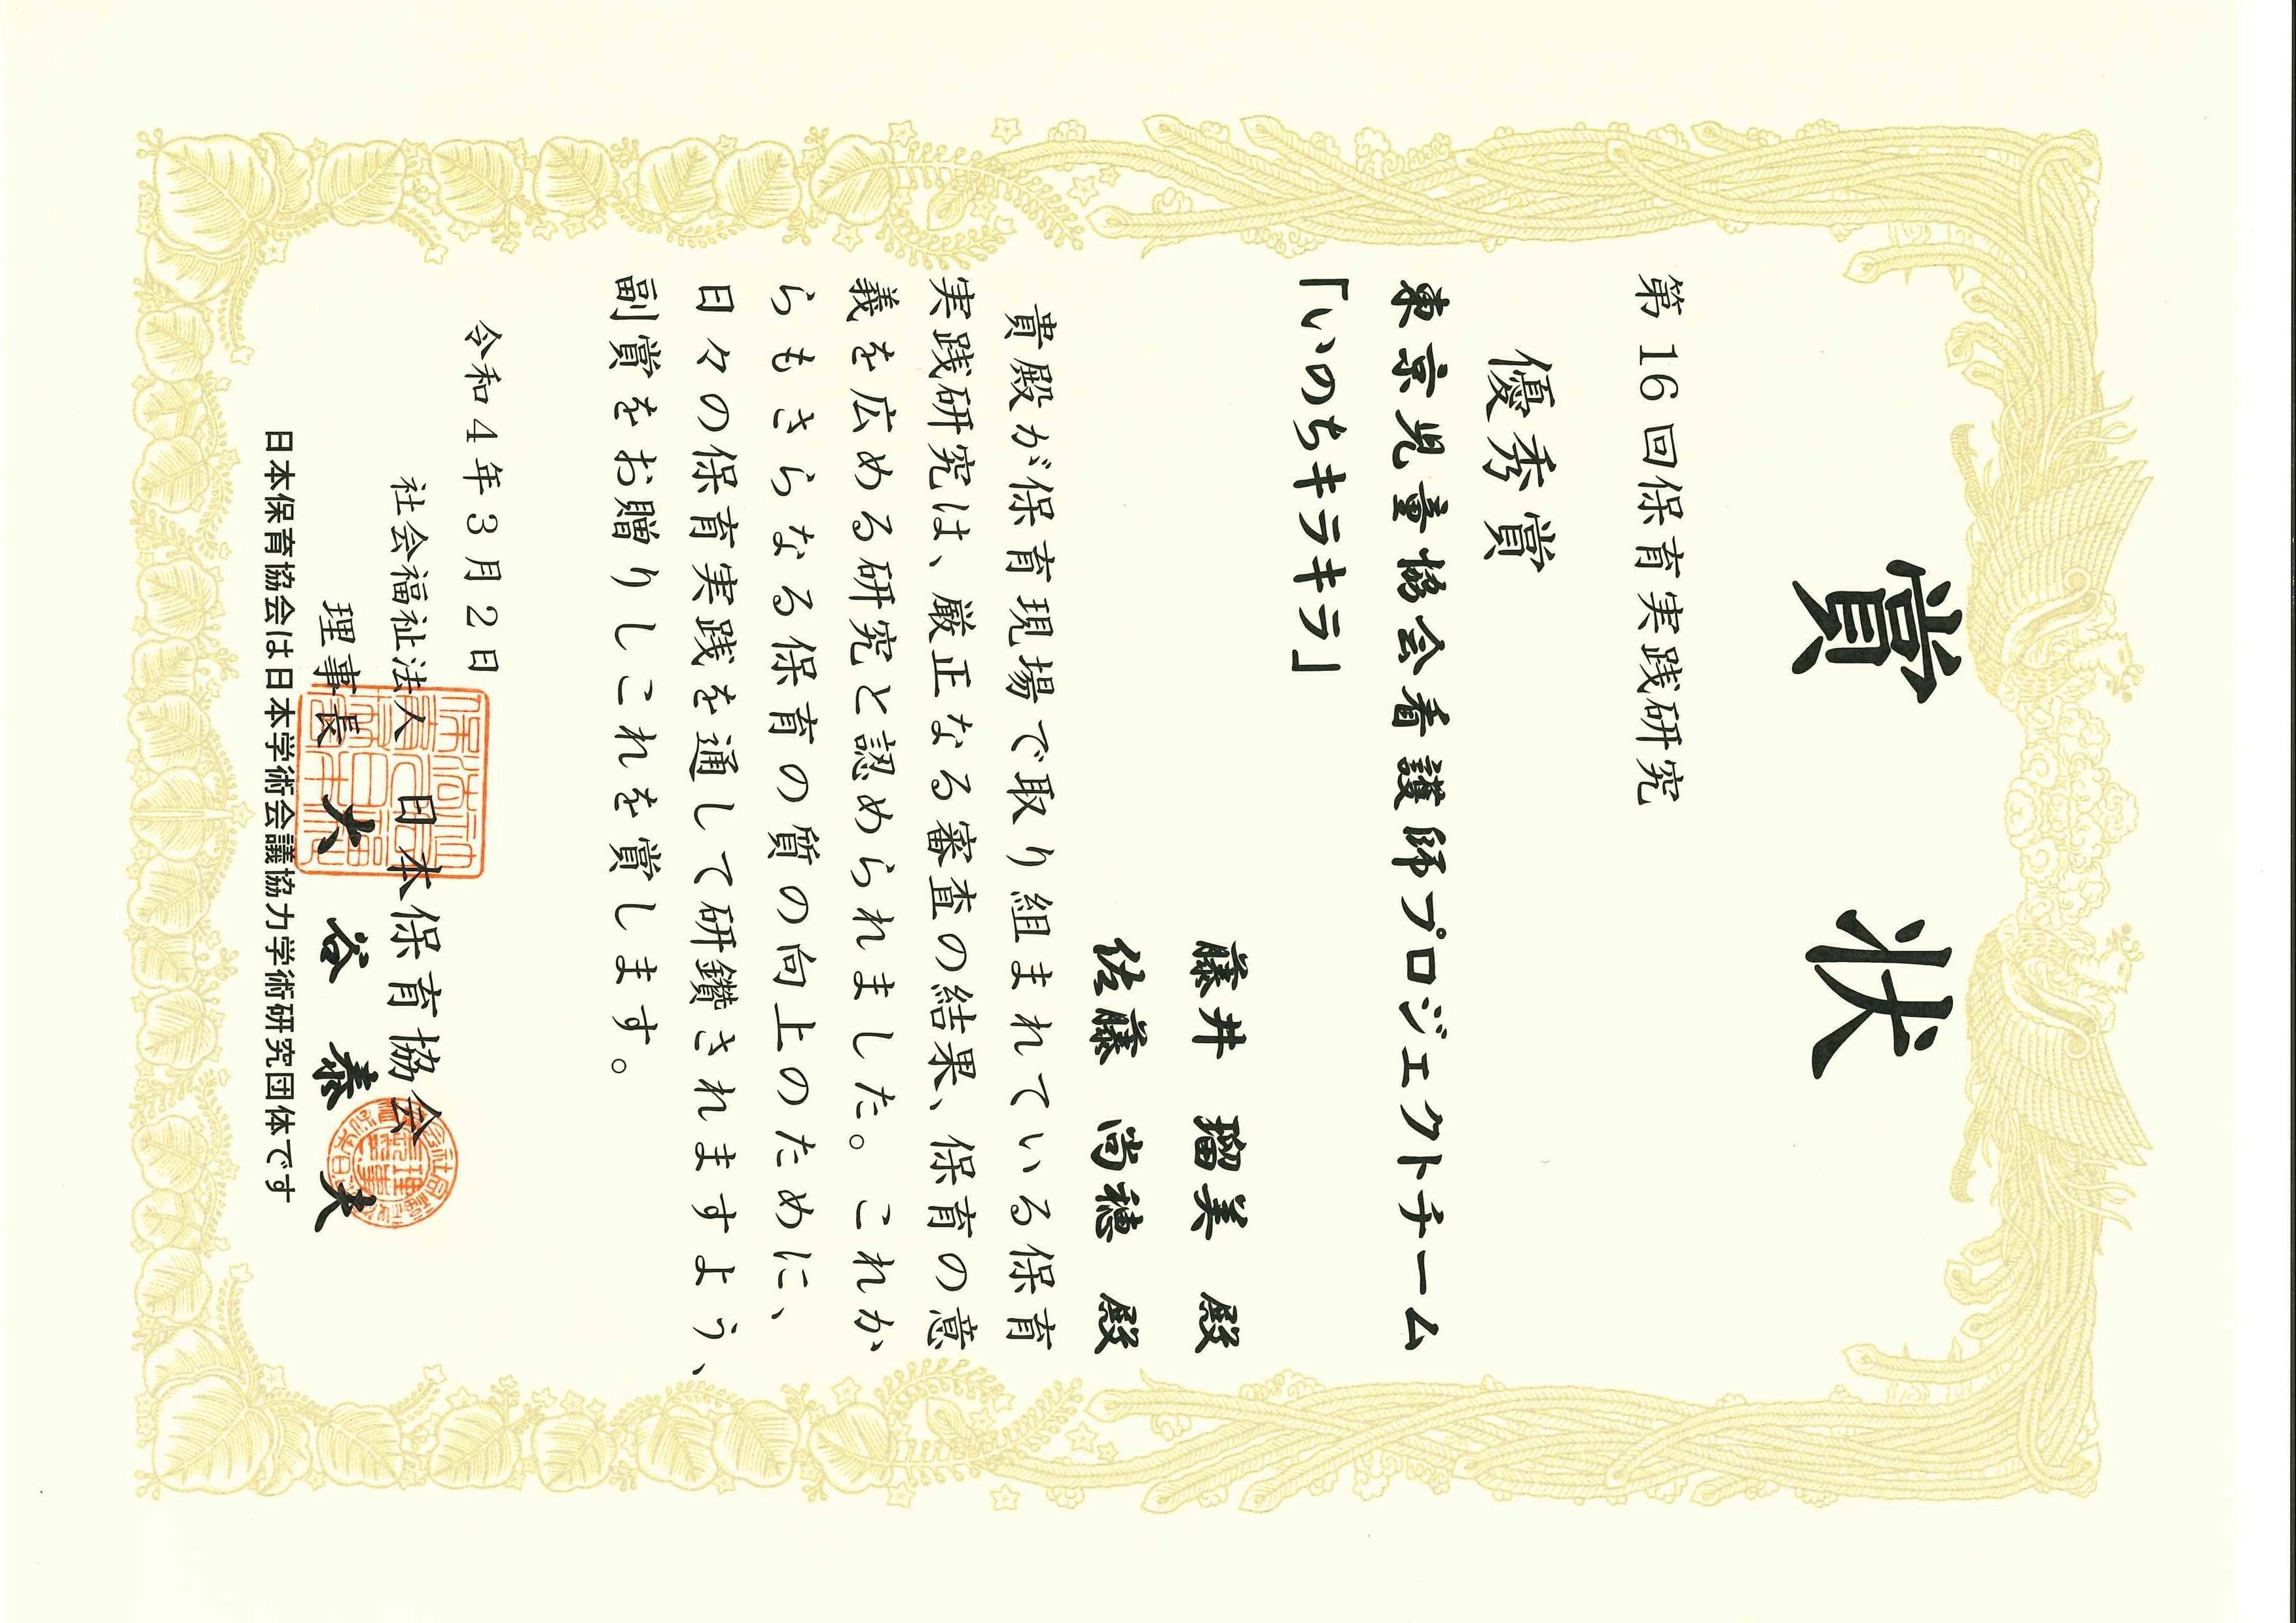 賞 状
第 16 回保育実践研究
優秀賞
東京児童協会看護師プロジェクトチーム
「いのちキラキラ」
藤井 瑠美 殿
佐藤 尚穂 殿
貴殿が保育現場で取り組まれている保育
実践研究は、厳正なる審査の結果、保育の意
義を広める研究と認められました。これか
らもさらなる保育の質の向上のために、
日々の保育実践を通して研鑽されますよう、
副賞をお贈りしこれを賞します。
令和４年３月２日
社会福祉法人 日本保育協会
理事長 大 谷 泰 夫
日本保育協会は日本学術会議協力学術研究団体です